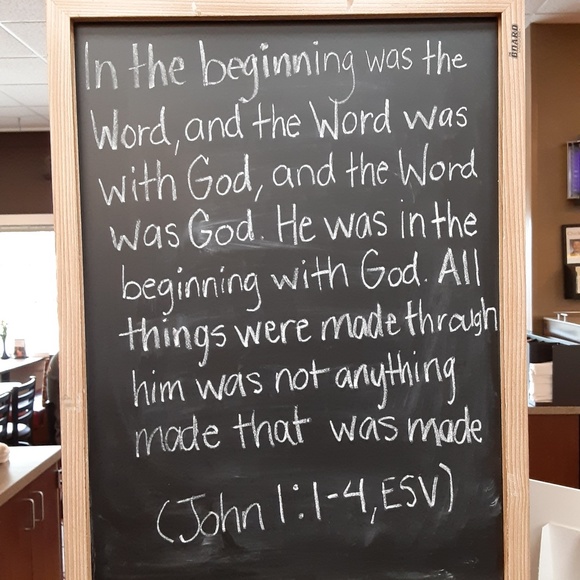 In the beginning was the
Word, and the Word was
with God, and the Word
was God. He was in the
beginning with God. All
things were made through
him was not anything
made that was made
(John 1:1-4, ESV)
BOARD